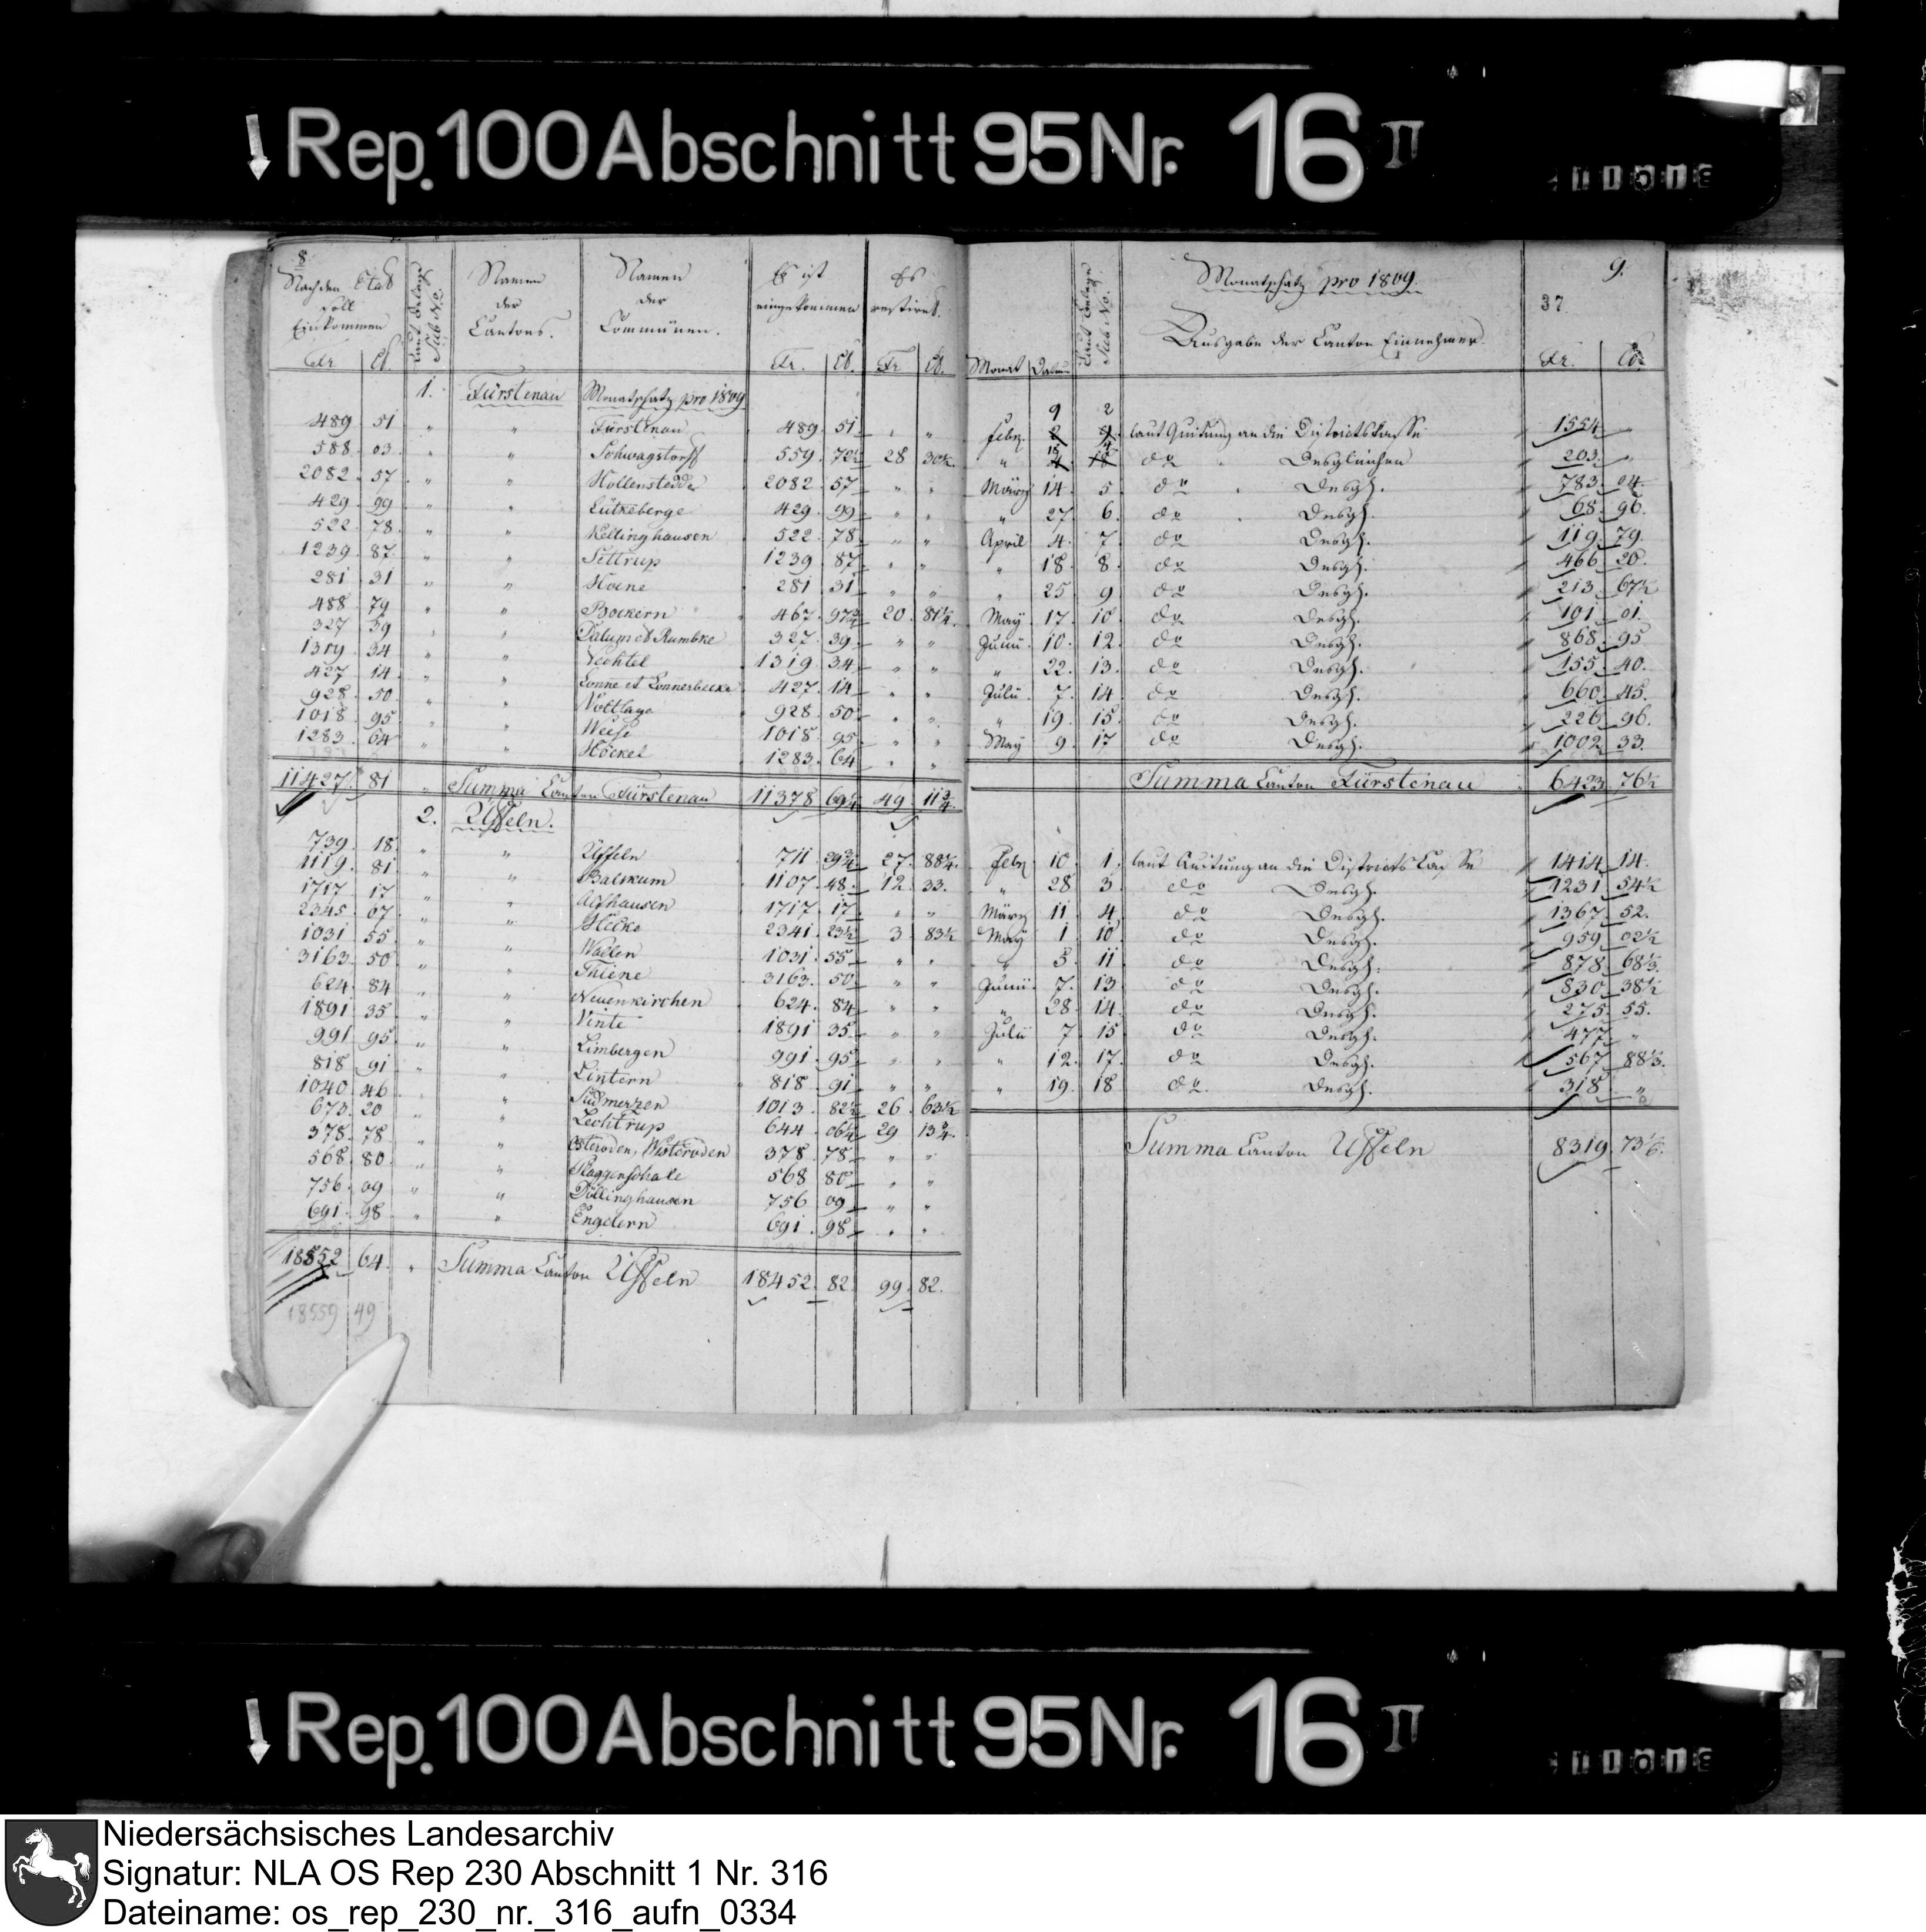 Rep. 100 Abschnitt 95 Nr. 16 II
8.
Nach den Etat soll Einkommen
Fr. Ct.
Laut Belege Sub No.
Namen der Cantons.
Namen der Communen.
Es ist eingekommen
Fr. Ct.
Es restiret.
Fr Ct.
1. Fürstenau Monatschatz pro 1809
489 51 " " Fürstenau 489 51 " "
588 03 " " Schwagstorff 559 72½ 28 30½
2082 57 " " Hollenstedde 2082 57 " "
429 99 " " Lütkeberge 429 99 " "
522 78 " " Kellinghausen 522 78 " "
1239 87 " " Settrup 1239 87 " "
281 31 " " Hoene 281 31 " "
488 79 " " Bockern 467 97¾ 20 81¼
327 39 " " Dalum et Rumbke 327 39 " "
1319 34 " " Vechtel 1319 34 " "
427 14 " " Lonne et Lonnerbecke 427 14 " "
928 50 " " Voltlage 928 50 " "
1018 95 " " Weese 1018 95 " "
1283 64 " " Höckel 1283 64 " "
11427 81 " Summa Canton Fürstenau 11378 69¼ 49 11¾
2. Uffeln.
739 18 " " Uffeln 711 29¾ 27 88¼
1119 81 " " Balkum 1107 48 12 33
1717 17 " " Alfhausen 1717 17 " "
2345 07 " " Hecke 2341 23½ 3 83½
1031 55 " " Wallen 1031 55 " "
3163 50 " " Thiene 3163 50 " "
624 84 " " Neuenkirchen 624 84 " "
1891 35 " " Vinte 1891 35 " "
991 95 " " Limbergen 991 95 " "
818 91 " " Lintern 818 91 " "
1040 46 " " Südmerzen 1013 82½ 26 63½
673 20 " " Lechtrup 644 06¼ 29 13¾
378 78 " " Osteroden, Westeroden 378 78 " "
568 80 " " Plaggenschale 568 80 " "
756 09 " " Döllinghausen 756 09 " "
691 98 " " Engelern 691 98 " "
18552 64 " Summa Canton Uffeln 18452 82 99 82.
18559 49
9.
37
Monat Datum
Laut Belege Sub No.
Monatschatz pro 1809.
Ausgabe der Canton Einnehmer.
Fr. Ct.
Febr. 9 2 laut Quitung an die Districtskasse 1554 "
" 15 4 do Desgleichen 203 "
März 14 5 do Desgl. 783 24
" 27 6. do Desgl. 68 96.
April 4 7 do Desgl. 119 79
" 18 8. do Desgl. 466 20.
" 25 9 do Desgl. 213 67½
May 17 10 do Desgl. 101 01.
Junii 10. 12. do Desgl. 868 95
" 22. 13. do Desgl. 155 40.
Julii 7. 14. do Desgl. 660 45.
" 19. 15. do Desgl. 226 96.
May 9 17 do Desgl. 1002 33.
Summa Canton Fürstenau 6423 76½
Febr 10 1 laut Quitung an die Districts Casse 1414 14.
" 28 3 do Desgl. 1231 54½
März 11 4. do Desgl. 1367 52.
May 1 10 do Desgl. 959 02½
" 5 11 do Desgl. 878 68⅓
Junii 7. 13 do Desgl. 830 38½
" 28 14. do Desgl. 275 55.
Julii 7 15 do Desgl. 477 "
" 12. 17. do Desgl. 567 88⅓
" 19. 18 do Desgl. 318 "
Summa Canton Uffeln 8319 73⅙
Rep. 100 Abschnitt 95 Nr. 16 II
Niedersächsisches Landesarchiv
Signatur: NLA OS Rep 230 Abschnitt 1 Nr. 316
Dateiname: os_rep_230_nr._316_aufn_0334